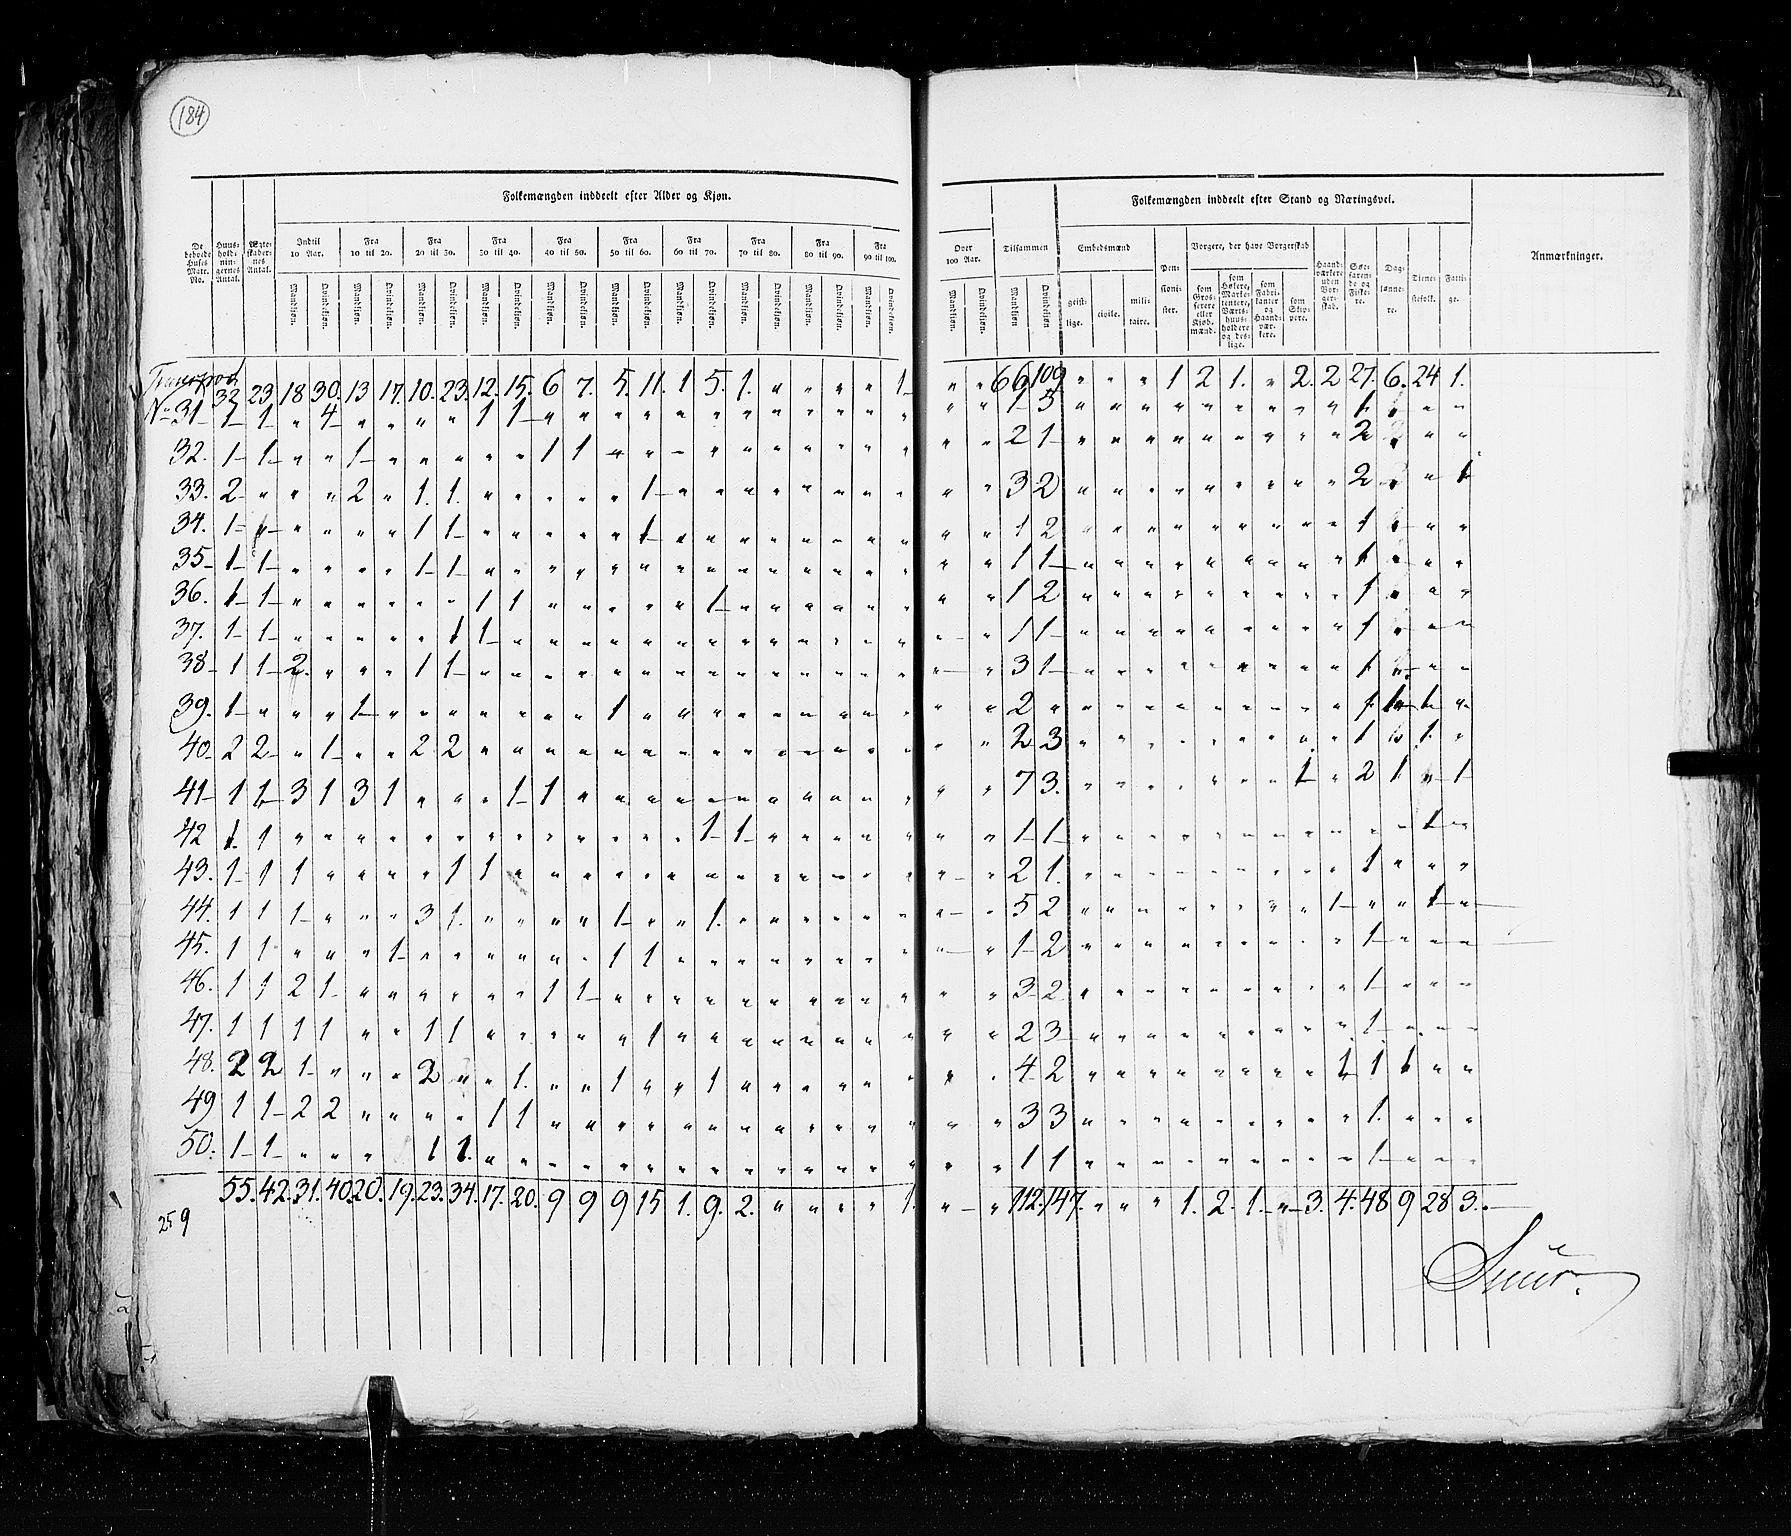 184
Folkemængden inddeelt efter Alder og Kjøn.
Folkemængden inddeelt efter Stand og Næringsvei.
De beboede Huses Matr. No.
Huus-hold-nin-gernes Antal.
Ægte-skaber-nes Antal.
Indtil 10 Aar.
Fra 10 til 20.
Fra 20 til 30.
Fra 30 til 40.
Fra 40 til 50.
Fra 50 til 60.
Fra 60 til 70.
Fra 70 til 80.
Fra 80 til 90.
Fra 90 til 100.
Over 100 Aar.
Tilsammen
Mandkjøn. Qvindekjøn.
Embedsmænd
geist-lige. civile. mili-taire.
Pen-sioni-ster.
Borgere, der have Borgerskab
som Gros-serere eller Kjøb-mænd.
som Høkere, Marke-tentere, Værts-huus-holdere og des-lige.
som Fabri-kanter og Haand-vær-kere.
som Skip-pere.
Haand-værkere uden Bor-ger-skab.
Søe-faren-de og Fiske-re.
Dag-lønne-re.
Tiene-stefolk.
Fatti-ge.
Anmærkninger.
32 23 18 30. 13 17. 10. 23. 12. 15. 6 7. 5. 11. 1 5. 1. " " " " 1 " " 66 109 " " " 1 2 1. " 2. 2 27. 6. 24 1.
No 31 1 1 " 4 " " " " 1 1 " " " " " " " " " " " " " " 1 5 " " " " " " " " " 1 " "
32. 1 1 " " 1 " " " " " 1 1 " " " " " " " " " " " " 2 1 " " " " " " " " " 2 " "
33. 2 " " " 2 " 1. 1. " " " " " 1 " " " " " " " " " " 3 2 " " " " " " " " " 2 " 1
34. 1 " " " " " 1 1 " " " " " 1 " " " " " " " " " " 1 2 " " " " " " " " " 1 " "
35 1 1 " " " " 1 1 " " " " " " " " " " " " " " " " 1 1 " " " " " " " " " 1 " "
36. 1 1 " " " " " " 1 1 " " " " " 1 " " " " " " " " 1 2 " " " " " " " " " 1 " "
37. 1 1 " " " " " 1 1 " " " " " " " " " " " " " " " 1 1 " " " " " " " " " 1 " "
38 1 1 2. " " " 1 1 " " " " " " " " " " " " " " " " 3 1 " " " " " " " " " 1 " "
39. 1 " " " 1 " " " " " " " 1 " " " " " " " " " " " 2 " " " " " " " " " " 1 1 1 "
40 2 2 " 1 " " 2 2 " " " " " " " " " " " " " " " " 2 3 " " " " " " " " " 1 " 1. "
41 1 1 3 1 3 1 " " " 1 1 " " " " " " " " " " " " " 7 3. " " " " " " " 1 " 2 1 " 1
42 1 1 " " " " " " " " " " " " " 1 1 " " " " " " " 1 1 " " " " " " " " " " " 1 "
43. 1 1 1 " " " " 1 1 " " " " " " " " " " " " " " " 2 1. " " " " " " " " " 1 " " "
44. 1 1 1 " " " 3 1. " " " " 1 " " 1. " " " " " " " " 5 2 " " " " " " " " 1 " " 1 "
45. 1 1 " " " 1 " " " " " " 1 1 " " " " " " " " " " 1 2 " " " " " " " " " 1 " " "
46. 1 1 2 1 " " " " " " 1 1 " " " " " " " " " " " " 3 2 " " " " " " " " " 1 " " "
47. 1 1 1 1 " " 1 1 " " " " " 1 " " " " " " " " " " 2 3 " " " " " " " " " 1 " " "
48. 2 2 1 " " " 2 " " 1. " " 1 " " 1 " " " " " " " " 4 2 " " " " " " " " 1 1 1 " "
49 1 1 2 2 " " " " 1 1 " " " " " " " " " " " " " " 3 3 " " " " " " " " " 1. " " "
50. 1 1 " " " 1 1. " " " " " " " " " " " " " " " " 1 1 " " " " " " " " " 1 " " "
55. 42. 31. 40. 20. 19. 23. 34. 17. 20. 9 9 9 15 1. 9. 2. " " " " 1. " " 112. 147. " " " 1. 2. 1. " 3. 4. 48 9 28 3.
259